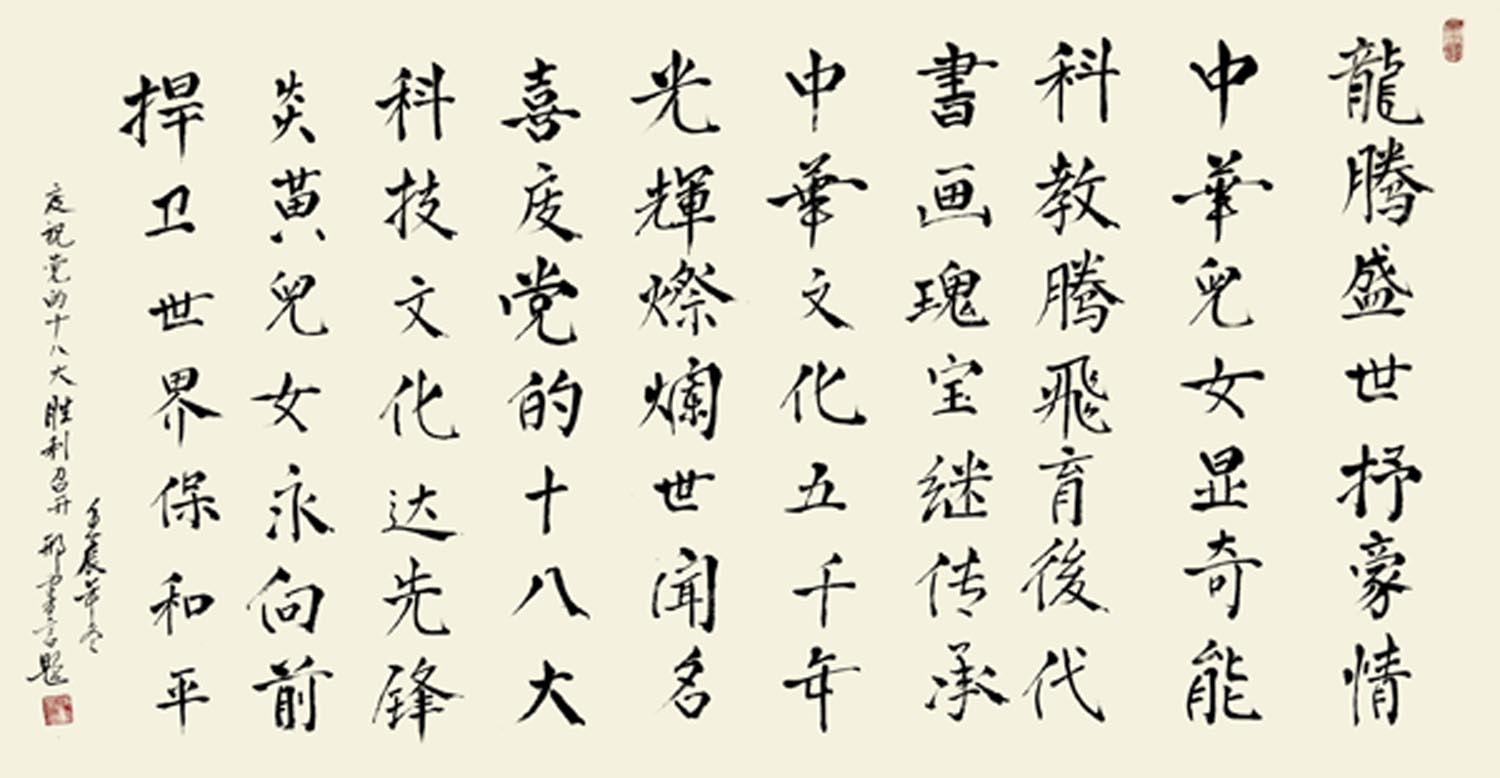 龍騰盛世抒豪情
中華兒女显奇能
科教騰飛育後代
書画瑰宝继传承
中華文化五千年
光輝燦爛世聞名
喜庆党的十八大
科技文化达先鋒
炎黄兒女永向前
捍卫世界保和平
壬辰年冬
庆祝党的十八大胜利召开 邢書言题